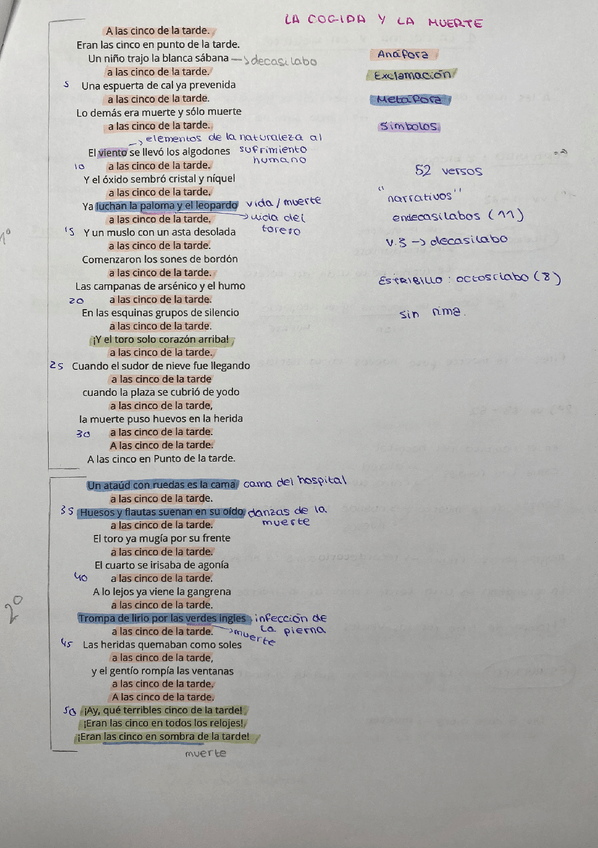 LA COGIDA Y LA MUERTE
A las cinco de la tarde.
Eran las cinco en punto de la tarde.
Un niño trajo la blanca sábana → decasilabo
a las cinco de la tarde.
5 Una espuerta de cal ya prevenida
a las cinco de la tarde.
Lo demás era muerte y sólo muerte
a las cinco de la tarde.
→ elementos de la naturaleza al sufrimiento humano
El viento se llevó los algodones
10 a las cinco de la tarde.
Y el óxido sembró cristal y níquel
a las cinco de la tarde.
Ya luchan la paloma y el leopardo vida / muerte
a las cinco de la tarde. → vida del torero
15 Y un muslo con un asta desolada
a las cinco de la tarde.
Comenzaron los sones de bordón
a las cinco de la tarde.
Las campanas de arsénico y el humo
20 a las cinco de la tarde.
En las esquinas grupos de silencio
a las cinco de la tarde.
¡Y el toro solo corazón arriba!
a las cinco de la tarde.
25 Cuando el sudor de nieve fue llegando
a las cinco de la tarde
cuando la plaza se cubrió de yodo
a las cinco de la tarde,
la muerte puso huevos en la herida
30 a las cinco de la tarde.
A las cinco de la tarde.
A las cinco en Punto de la tarde.
1º
Un ataúd con ruedas es la cama cama del hospital
a las cinco de la tarde.
35 Huesos y flautas suenan en su oído danzas de la muerte
a las cinco de la tarde.
El toro ya mugía por su frente
a las cinco de la tarde.
El cuarto se irisaba de agonía
40 a las cinco de la tarde.
A lo lejos ya viene la gangrena
a las cinco de la tarde.
Trompa de lirio por las verdes ingles infección de la pierna
a las cinco de la tarde. → muerte
45 Las heridas quemaban como soles
a las cinco de la tarde,
y el gentío rompía las ventanas
a las cinco de la tarde.
A las cinco de la tarde.
50 ¡Ay, qué terribles cinco de la tarde!
¡Eran las cinco en todos los relojes!
¡Eran las cinco en sombra de la tarde!
muerte
2º
Anáfora
Exclamación
Metáfora
Símbolos
52 versos
"narrativos"
endecasilabos (11)
v.3 → decasilabo
ESTRIBILLO: octosilabo (8)
sin rima.